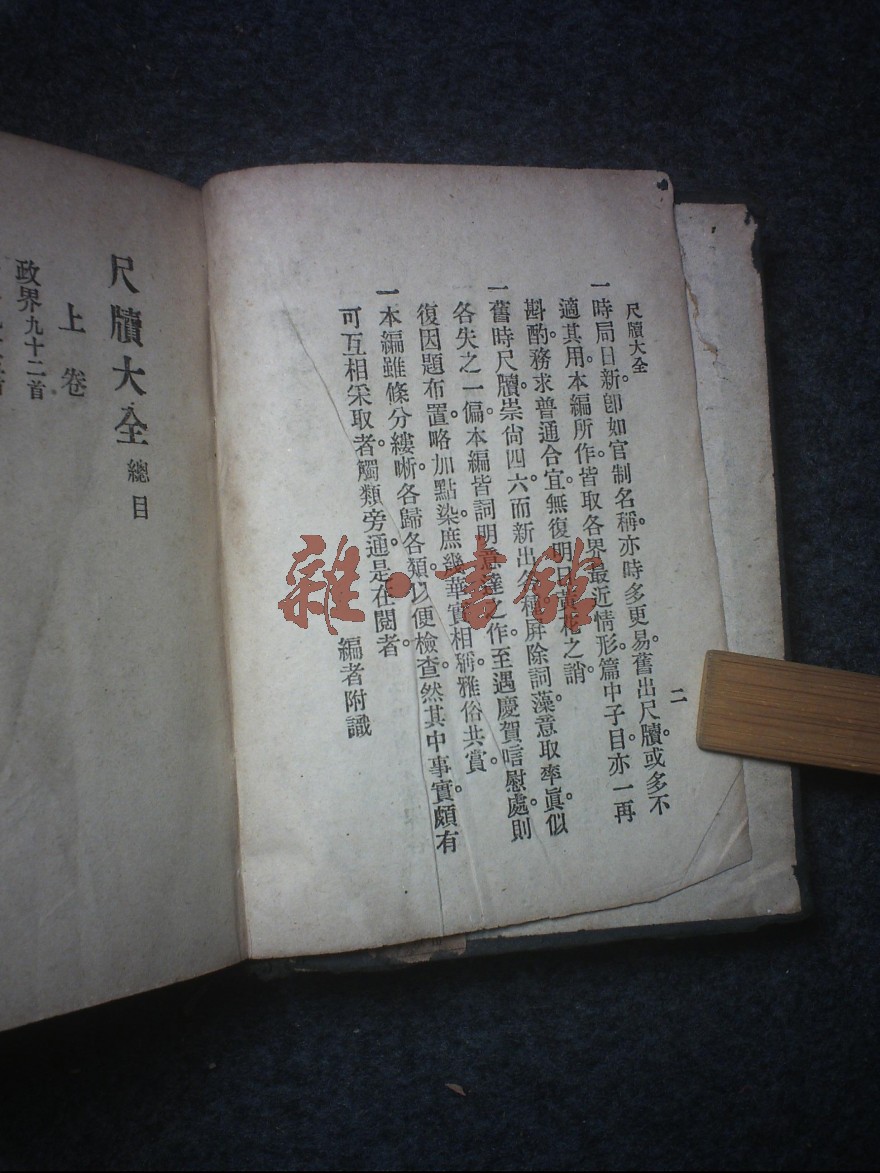 尺牘大全
二
一時局日新。卽如官制名稱。亦時多更易。舊出尺牘。或多不
適其用。本編所作。皆取各界最近情形。篇中子目。亦一再
斟酌。務求普通合宜。無復明日黃花之誚。
一舊時尺牘。崇尙四六。而新出各種。屏除詞藻。意取率眞。似
各失之一偏。本編皆詞明意達之作。至遇慶賀唁慰處。則
復因題布置。略加點染。庶幾華實相稱。雅俗共賞。
一本編雖條分縷晰。各歸各類。以便檢查。然其中事實。頗有
可互相采取者。觸類旁通。是在閱者。
編者附識
尺牘大全 總目
上卷
政界九十二首
雜·書館